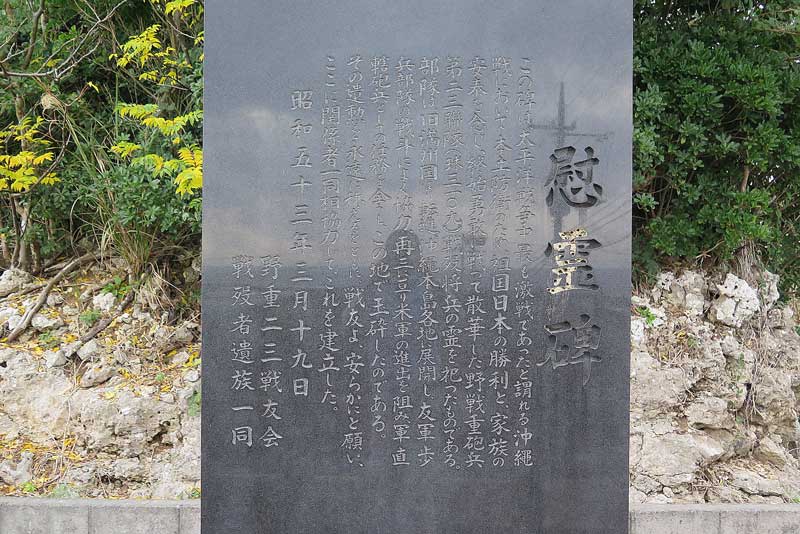 慰霊碑
この碑は、太平洋戦争中最も激戦であったと謂れる沖縄
戦において、本土防衛のため、祖国日本の勝利と、家族の
安泰を念じつつ、勇戦って散華した野戦重砲兵
第二三聯隊(球三一〇九)戦歿将兵の霊を祀ったものである。
部隊は旧満州国より転進、沖縄本島各地に展開し友軍歩
兵部隊の戦斗によく協力、再三に亘り米軍の進出を阻み軍直
轄砲兵としての任務を全うし、この地で玉砕したのである。
その遺勲を永遠に称えるとともに、戦友よ、安らかにと願い、
ここに関係者一同相協力して、これを建立した。
昭和五十三年三月十九日
野重二三戦友会
戦歿者遺族一同